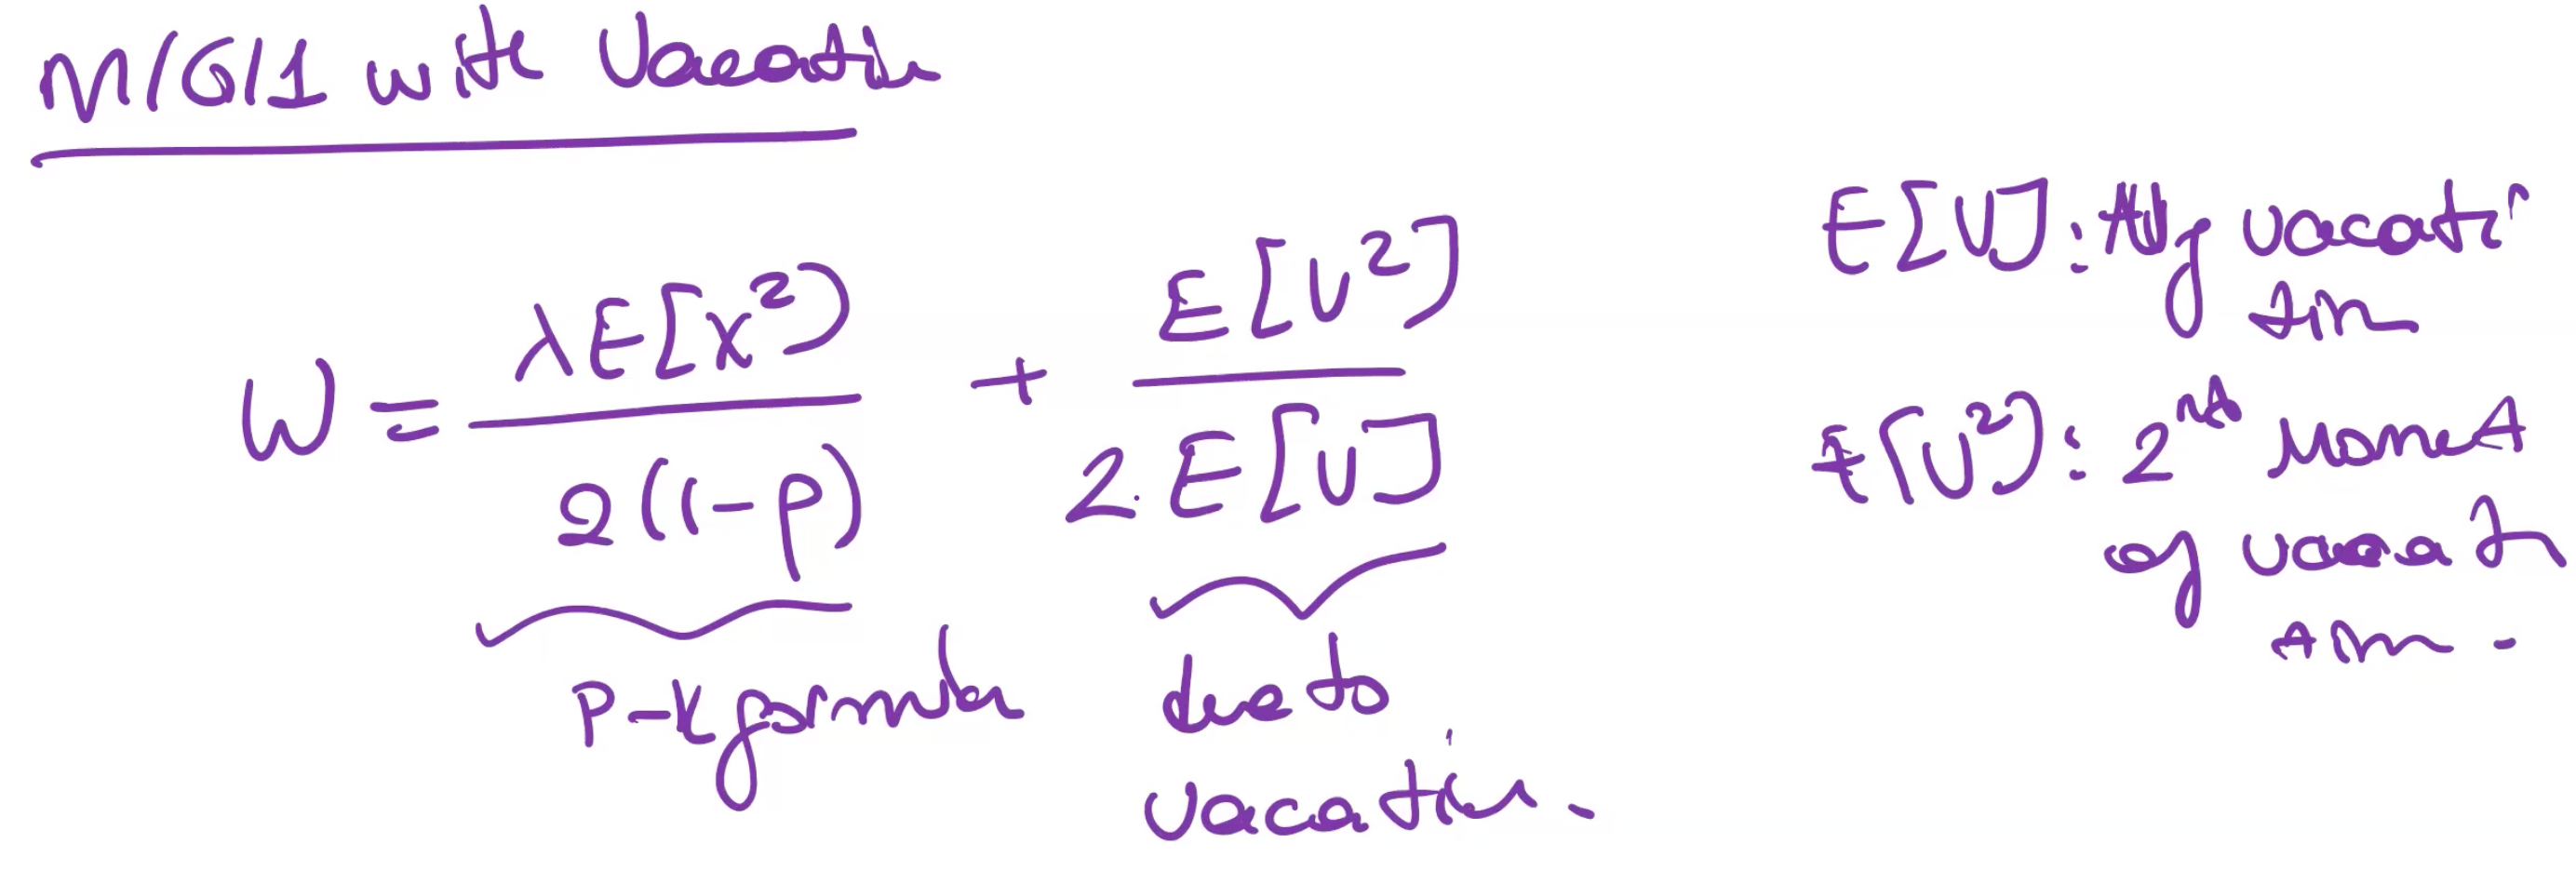 M/G/1 with Vacation
W = λE[X²] / 2(1-ρ) + E[V²] / 2.E[V]
P-K formula
due to
vacation.
E[V]: Avg vacati
tim
E[V²]: 2nd Moment
of vacat
tim.